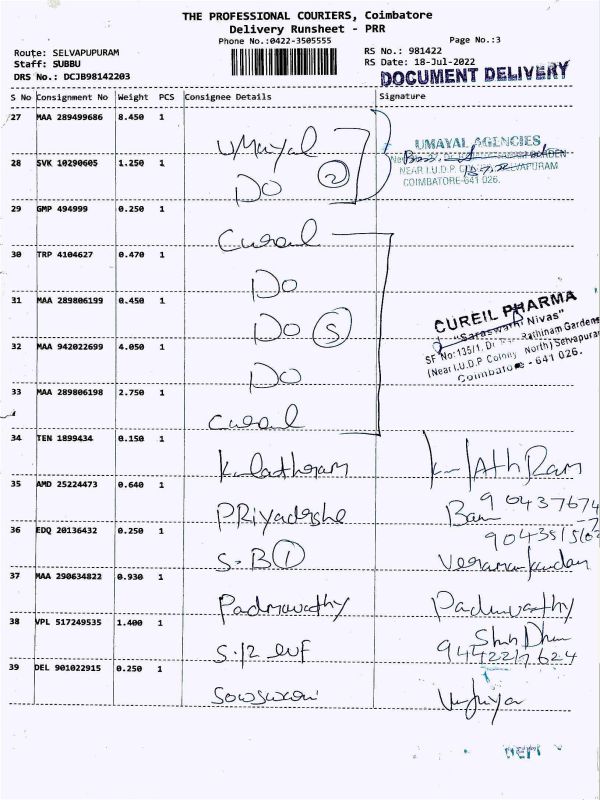 THE PROFESSIONAL COURIERS, Coimbatore
Delivery Runsheet - PRR
Phone No.:0422-3505555
Page No.:3
Route: SELVAPUPURAM
RS No.: 981422
Staff: SUBBU
RS Date: 18-Jul-2022
DRS No.: DCJB98142203
DOCUMENT DELIVERY
S No Consignment No Weight PCS Consignee Details Signature
27 MAA 289499686 8.450 1 UMayal
UMAYAL AGENCIES
NEAR I.U.D.P. SELVAPURAM
COIMBATORE-641 026.
28 SVK 10290605 1.250 1 DO 2
29 GMP 494999 0.250 1 Cureil
30 TRP 4104627 0.470 1 DO
31 MAA 289806199 0.450 1 DO 5
CUREIL PHARMA
"Saraswathi Nivas"
SF No:135/1, Rathinam Gardens
(Near I.U.D.P Colony North) Selvapuram
Coimbatore - 641 026.
32 MAA 942022699 4.050 1 DO
33 MAA 289806198 2.750 1 Cureil
34 TEN 1899434 0.150 1
35 AMD 25224473 0.640 1
9043767
36 EDQ 20136432 0.250 1 S-B 1
37 MAA 290634822 0.930 1 Padmavathy
38 VPL 517249535 1.400 1
39 DEL 901022915 0.250 1